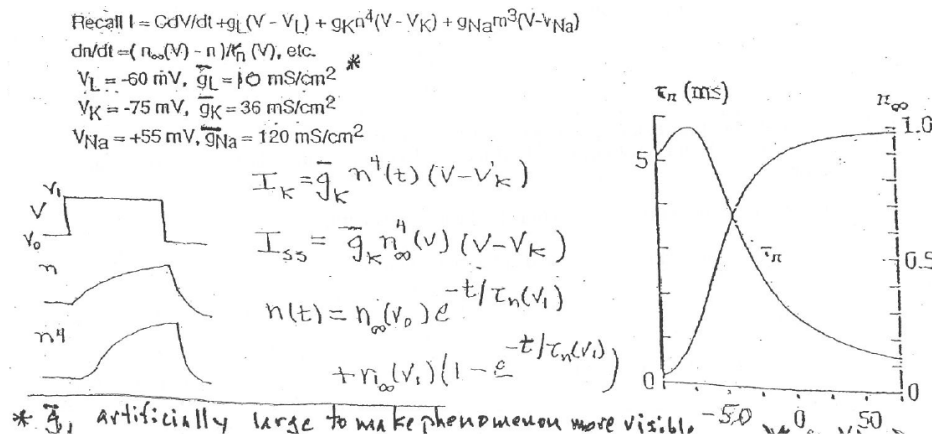 Recall I = CdV/dt +g_L(V - V_L) + g_Kn^4(V - V_K) + g_Nam^3(V-V_Na)
dn/dt =( n_∞(V) - n )/τ_n (V), etc.
V_L = -60 mV, g̅_L = 10 mS/cm^2 *
V_K = -75 mV, g̅_K = 36 mS/cm^2
V_Na = +55 mV, g̅_Na = 120 mS/cm^2
I_K = g̅_K n^4(t) (V-V_K)
I_ss = g̅_K n_∞^4(V) (V-V_K)
n(t) = n_∞(V_0) e^{-t/τ_n(V_1)}
+ n_∞(V_1) (1 - e^{-t/τ_n(V_1)})
V_1
V
V_0
n
n^4
τ_n (ms)
n_∞
5
1.0
τ_n
0.5
0
0
-50 0 50
* g̅_L artificially large to make phenomenon more visible